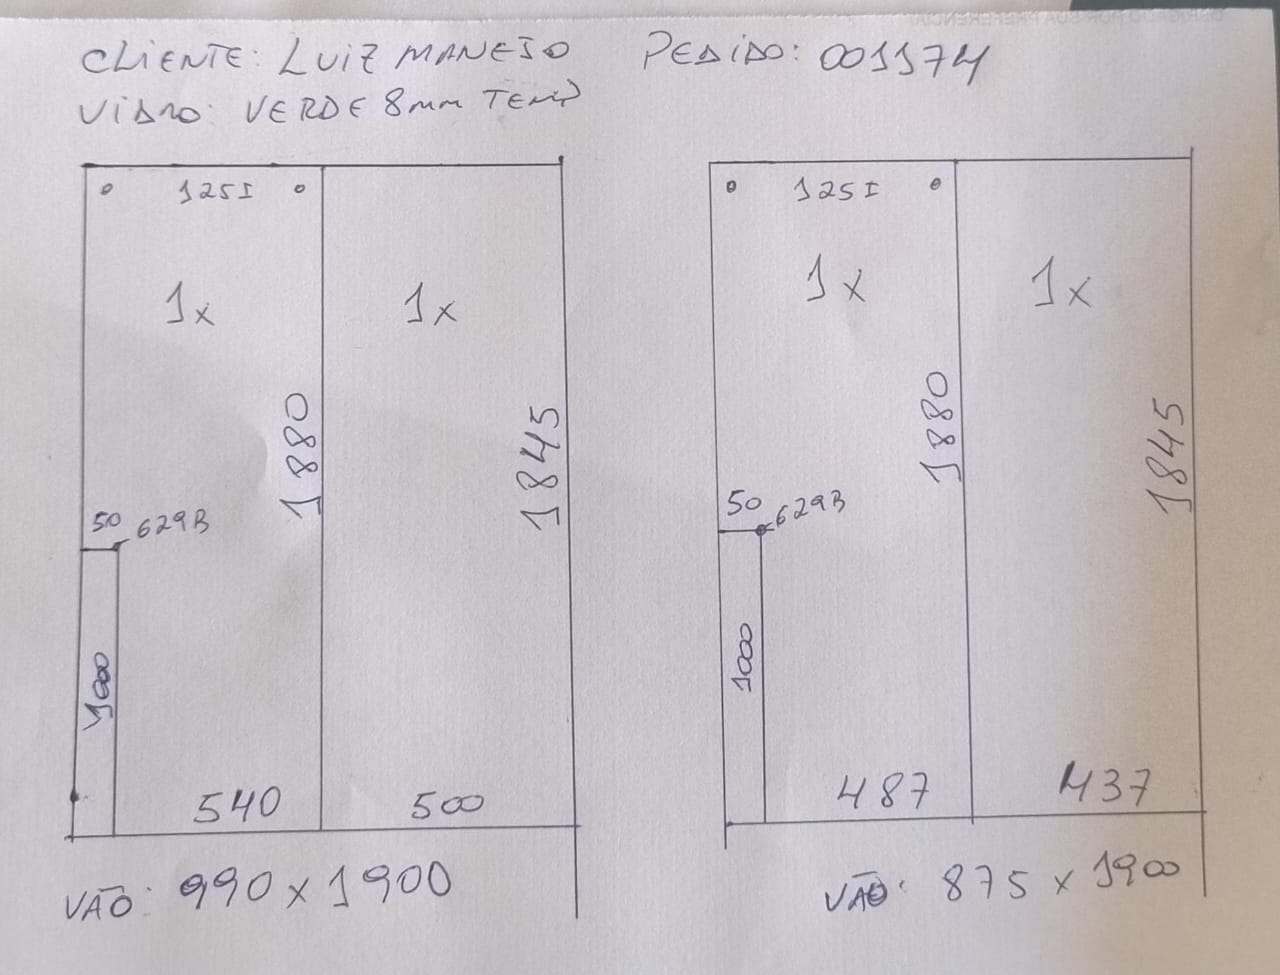 CLIENTE: LUIZ MANEJO PEDIDO: 001174
VIDRO: VERDE 8mm TEMP
125I
1x 1x
1880
1845
50 629B
1000
540 500
VÃO: 990 x 1900
125I
1x 1x
1880
1845
50 629B
1000
487 437
VÃO: 875 x 1900